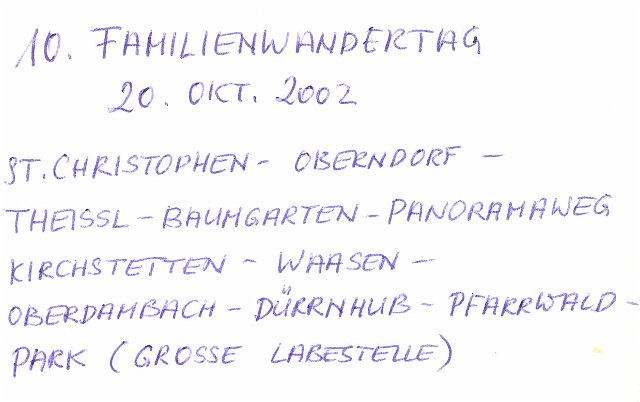 10. FAMILIENWANDERTAG
20. OKT. 2002
ST. CHRISTOPHEN - OBERNDORF -
THEISSL - BAUMGARTEN - PANORAMAWEG
KIRCHSTETTEN - WAASEN -
OBERDAMBACH - DÜRRNHUB - PFARRWALD -
PARK (GROSSE LABESTELLE)